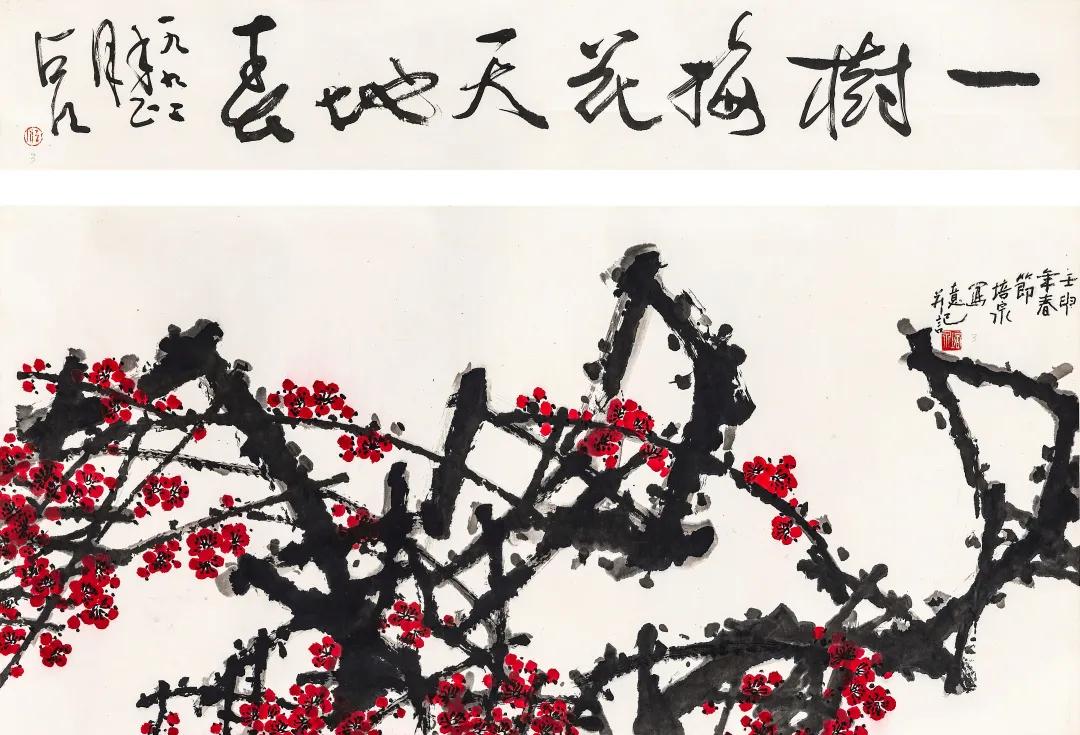 一樹梅花天地春
一九九二
年正
月
3
壬申
年春
節
培泉
寫
意
并記
3